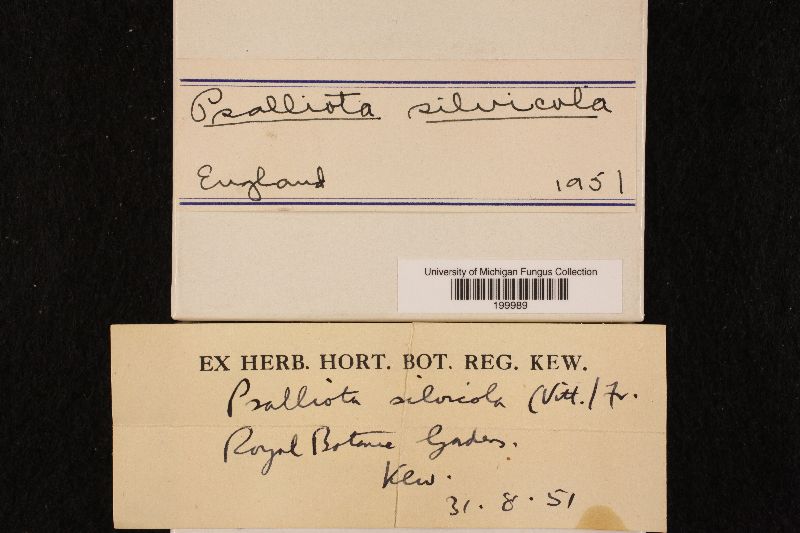 Psalliota silvicola
England 1951
University of Michigan Fungus Collection
199989
EX HERB. HORT. BOT. REG. KEW.
Psalliota silvicola (Vitt.) Fr.
Royal Botanic Gardens.
Kew.
31. 8. 51